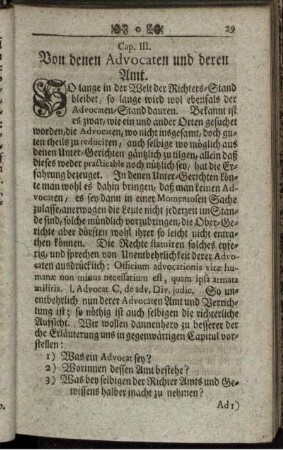 29
Cap. III.
Von denen Advocaten und deren
Amt.
SO lange in der Welt der Richters-Stand
bleibet, so lange wird wol ebenfals der
Advocaten-Stand dauren. Bekannt ist
es zwar, wie ein und ander Orten gesuchet
worden, die Advocaten, wo nicht insgesamt, doch gu-
ten theils zu reduciren, auch selbige wo möglich aus
denen Unter-Gerichten gäntzlich zu tilgen, allein daß
dieses weder practicable noch nützlich sey, hat die Er-
fahrung bezeuget. In denen Unter-Gerichten kön-
te man wohl es dahin bringen, daß man keinen Ad-
vocaten, es sey dann in einer Momentosen Sache
zulasse, anerwogen die Leute nicht jederzeit im Stan-
de sind, solche mündlich vorzubringen, die Ober-Ge-
richte aber dörften wohl ihrer so leicht nicht entra-
then können. Die Rechte statuiren solches eyfe-
rig, und sprechen von Unentbehrlichkeit derer Advo-
caten ausdrücklich: Officium advocationis vitæ hu-
manæ non minus necessarium est, quam ipsa armata
militia. l. Advocat C. de adv. Div. judic. So un-
entbehrlich nun derer Advocaten Amt und Verrich-
tung ist; so nöthig ist auch selbigen die richterliche
Aufsicht. Wir wollen dannenhero zu besserer der
che Erläuterung uns in gegenwärtigen Capitul vor-
stellen:
1) Was ein Advocat sey?
2) Worinnen dessen Amt bestehe?
3) Was bey selbigen der Richter Amts und Ge-
wissens halber inacht zu nehmen?
Ad 1)